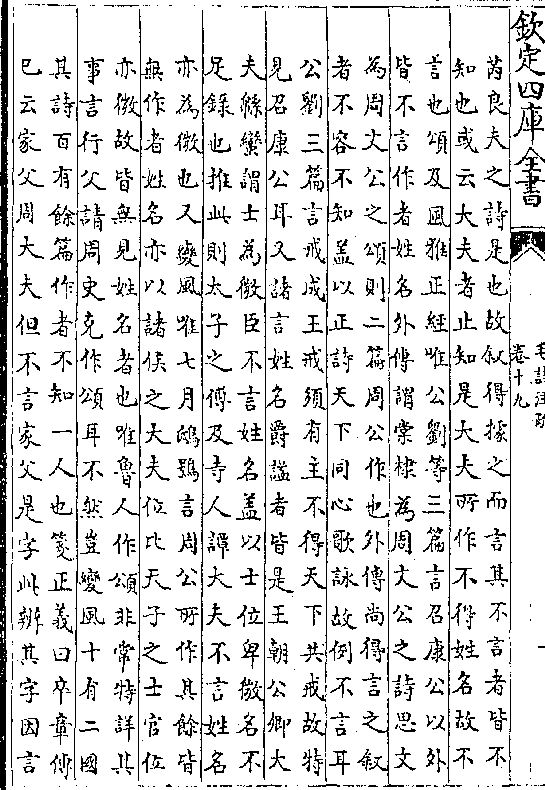 欽定四庫全書
毛詩注疏
卷十九
芮良夫之詩是也故叙得據之而言其不言者皆不
知也或云大夫者止知是大夫所作不得姓名故不
言也頌及風雅正經唯公劉等三篇言召康公以外
皆不言作者姓名外傳謂棠棣為周文公之詩思文
為周文公之頌則二篇周公作也外傳尚得言之叙
者不容不知蓋以正詩天下同心歌詠故例不言耳
公劉三篇言戒成王戒須有主不得天下共戒故特
見召康公耳又諸言姓名爵謚者皆是王朝公卿大
夫緜蠻謂士為微臣不言姓名蓋以士位卑微名不
足錄也推此則太子之傅及寺人譚大夫不言姓名
亦為微也又變風唯七月鴟鴞言周公所作其餘皆
無作者姓名亦以諸侯之大夫位比天子之士官位
亦微故皆無見姓名者也唯魯人作頌非常特詳其
事言行父請周史克作頌耳不然豈變風十有二國
其詩百有餘篇作者不知一人也箋正義曰卒章傳
已云家父周大夫但不言家父是字此辨其字因言